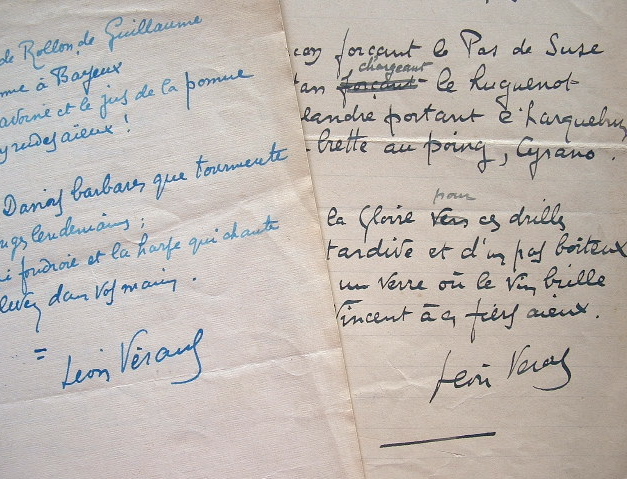 de Rollon, de Guillaume
à Bayeux
et le jus de la pomme
aïeux !
Danois barbares que tourmente
lendemains ;
foudroie et la harpe qui chante
dans vos mains .
=
Léon Vérane
forçant le Pas de Suse
chargeant
forçant le huguenot
portant l'arquebuse
brette au poing, Cyrano .
pour
la Gloire vers ces drilles
tardive et d'un pas boiteux
un verre où le vin brille
Vincent à ces fiers aïeux .
Léon Vérane